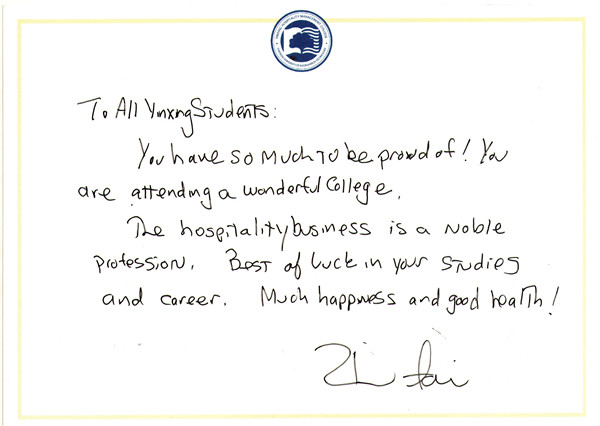 To All Yinxing Students:
You have so much to be proud of! You
are attending a wonderful College.
The hospitality business is a noble
profession. Best of luck in your studies
and career. Much happiness and good health!